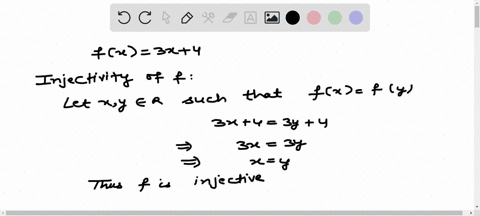 f(x)=3x+4
Injectivity of f:
Let x,y ∈ R such that f(x)=f(y)
3x+4=3y+4
⇒ 3x=3y
⇒ x=y
Thus f is injective